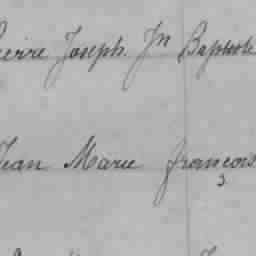 Pierre Joseph Jn Baptiste
Jean Marie françois
3